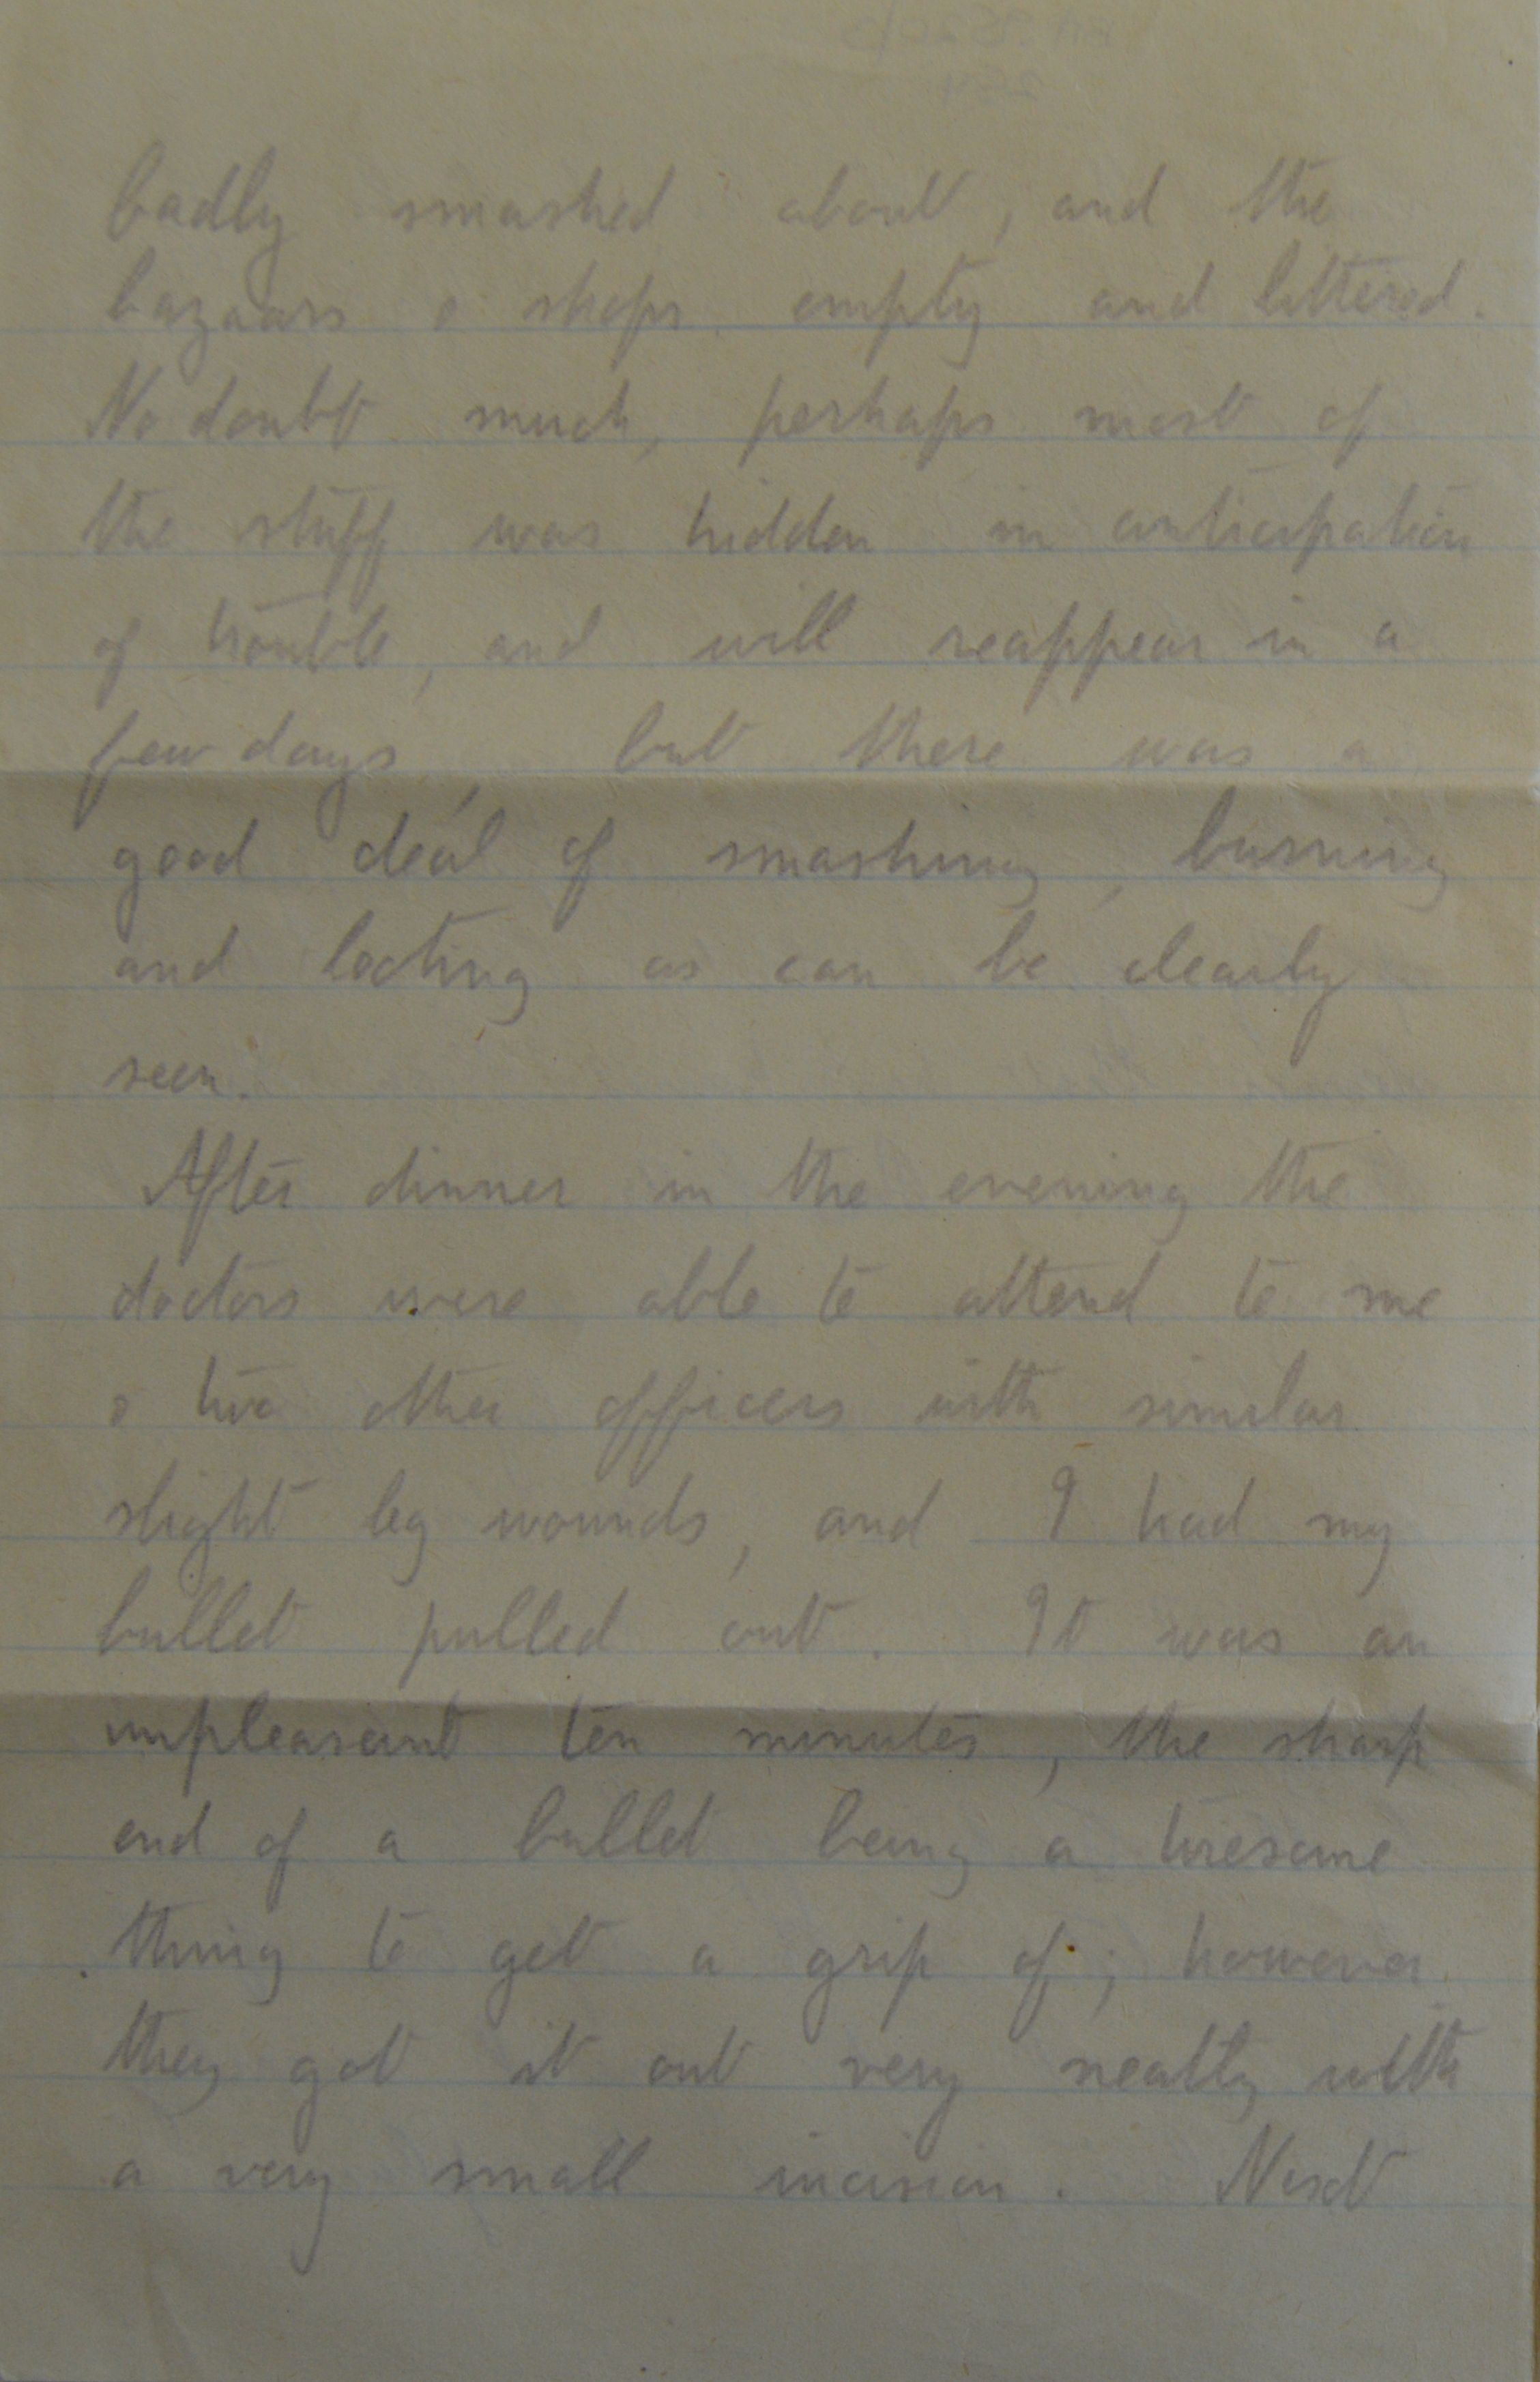 badly smashed about, and the
bazaars & shops empty and littered.
No doubt much, perhaps most of
the stuff was hidden in anticipation
of trouble, and will reappear in a
few days, but there was a
good deal of smashing, burning
and looting as can be clearly
seen.
After dinner in the evening the
doctors were able to attend to me
& two other officers with similar
slight leg wounds, and I had my
bullet pulled out. It was an
unpleasant ten minutes, the sharp
end of a bullet being a tiresome
thing to get a grip of; however
they got it out very neatly with
a very small incision. Next